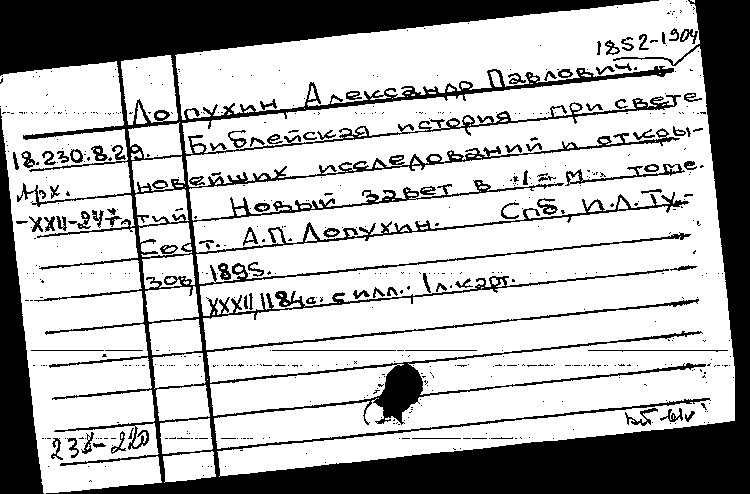 1852-1904
Лопухин, Александр Павлович.
18.230.8.29. Библейская история при свете
Арх. новейших исследований и откры-
тий. Новый завет в 1-м томе.
Сост. А.П. Лопухин. Спб., И.Л. Ту-
зов, 1895.
XXXII, 1184 с. с илл.; 1 л. карт.